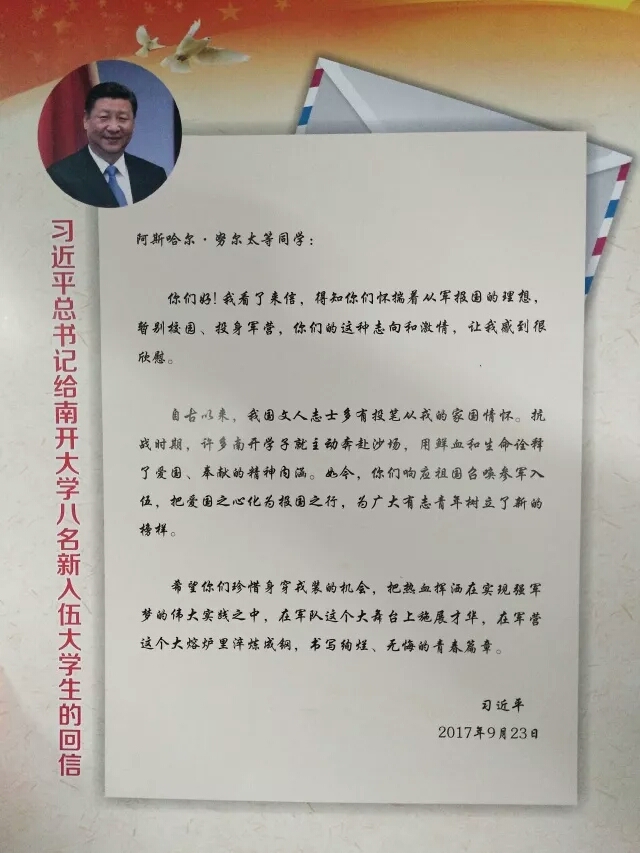 习近平总书记给南开大学八名新入伍大学生的回信
阿斯哈尔·努尔太等同学：
你们好！我看了来信，得知你们怀揣着从军报国的理想，
暂别校园、投身军营，你们的这种志向和激情，让我感到很
欣慰。
自古以来，我国文人志士多有投笔从戎的家国情怀。抗
战时期，许多南开学子就主动奔赴沙场，用鲜血和生命诠释
了爱国、奉献的精神内涵。如今，你们响应祖国召唤参军入
伍，把爱国之心化为报国之行，为广大有志青年树立了新的
榜样。
希望你们珍惜身穿戎装的机会，把热血挥洒在实现强军
梦的伟大实践之中，在军队这个大舞台上施展才华，在军营
这个大熔炉里淬炼成钢，书写绚烂、无悔的青春篇章。
习近平
2017年9月23日